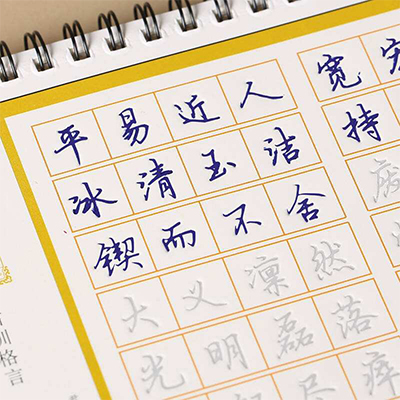 平易近人 宽
冰清玉洁 持
锲而不舍
大义凛然
光明磊落
尽瘁
训格言